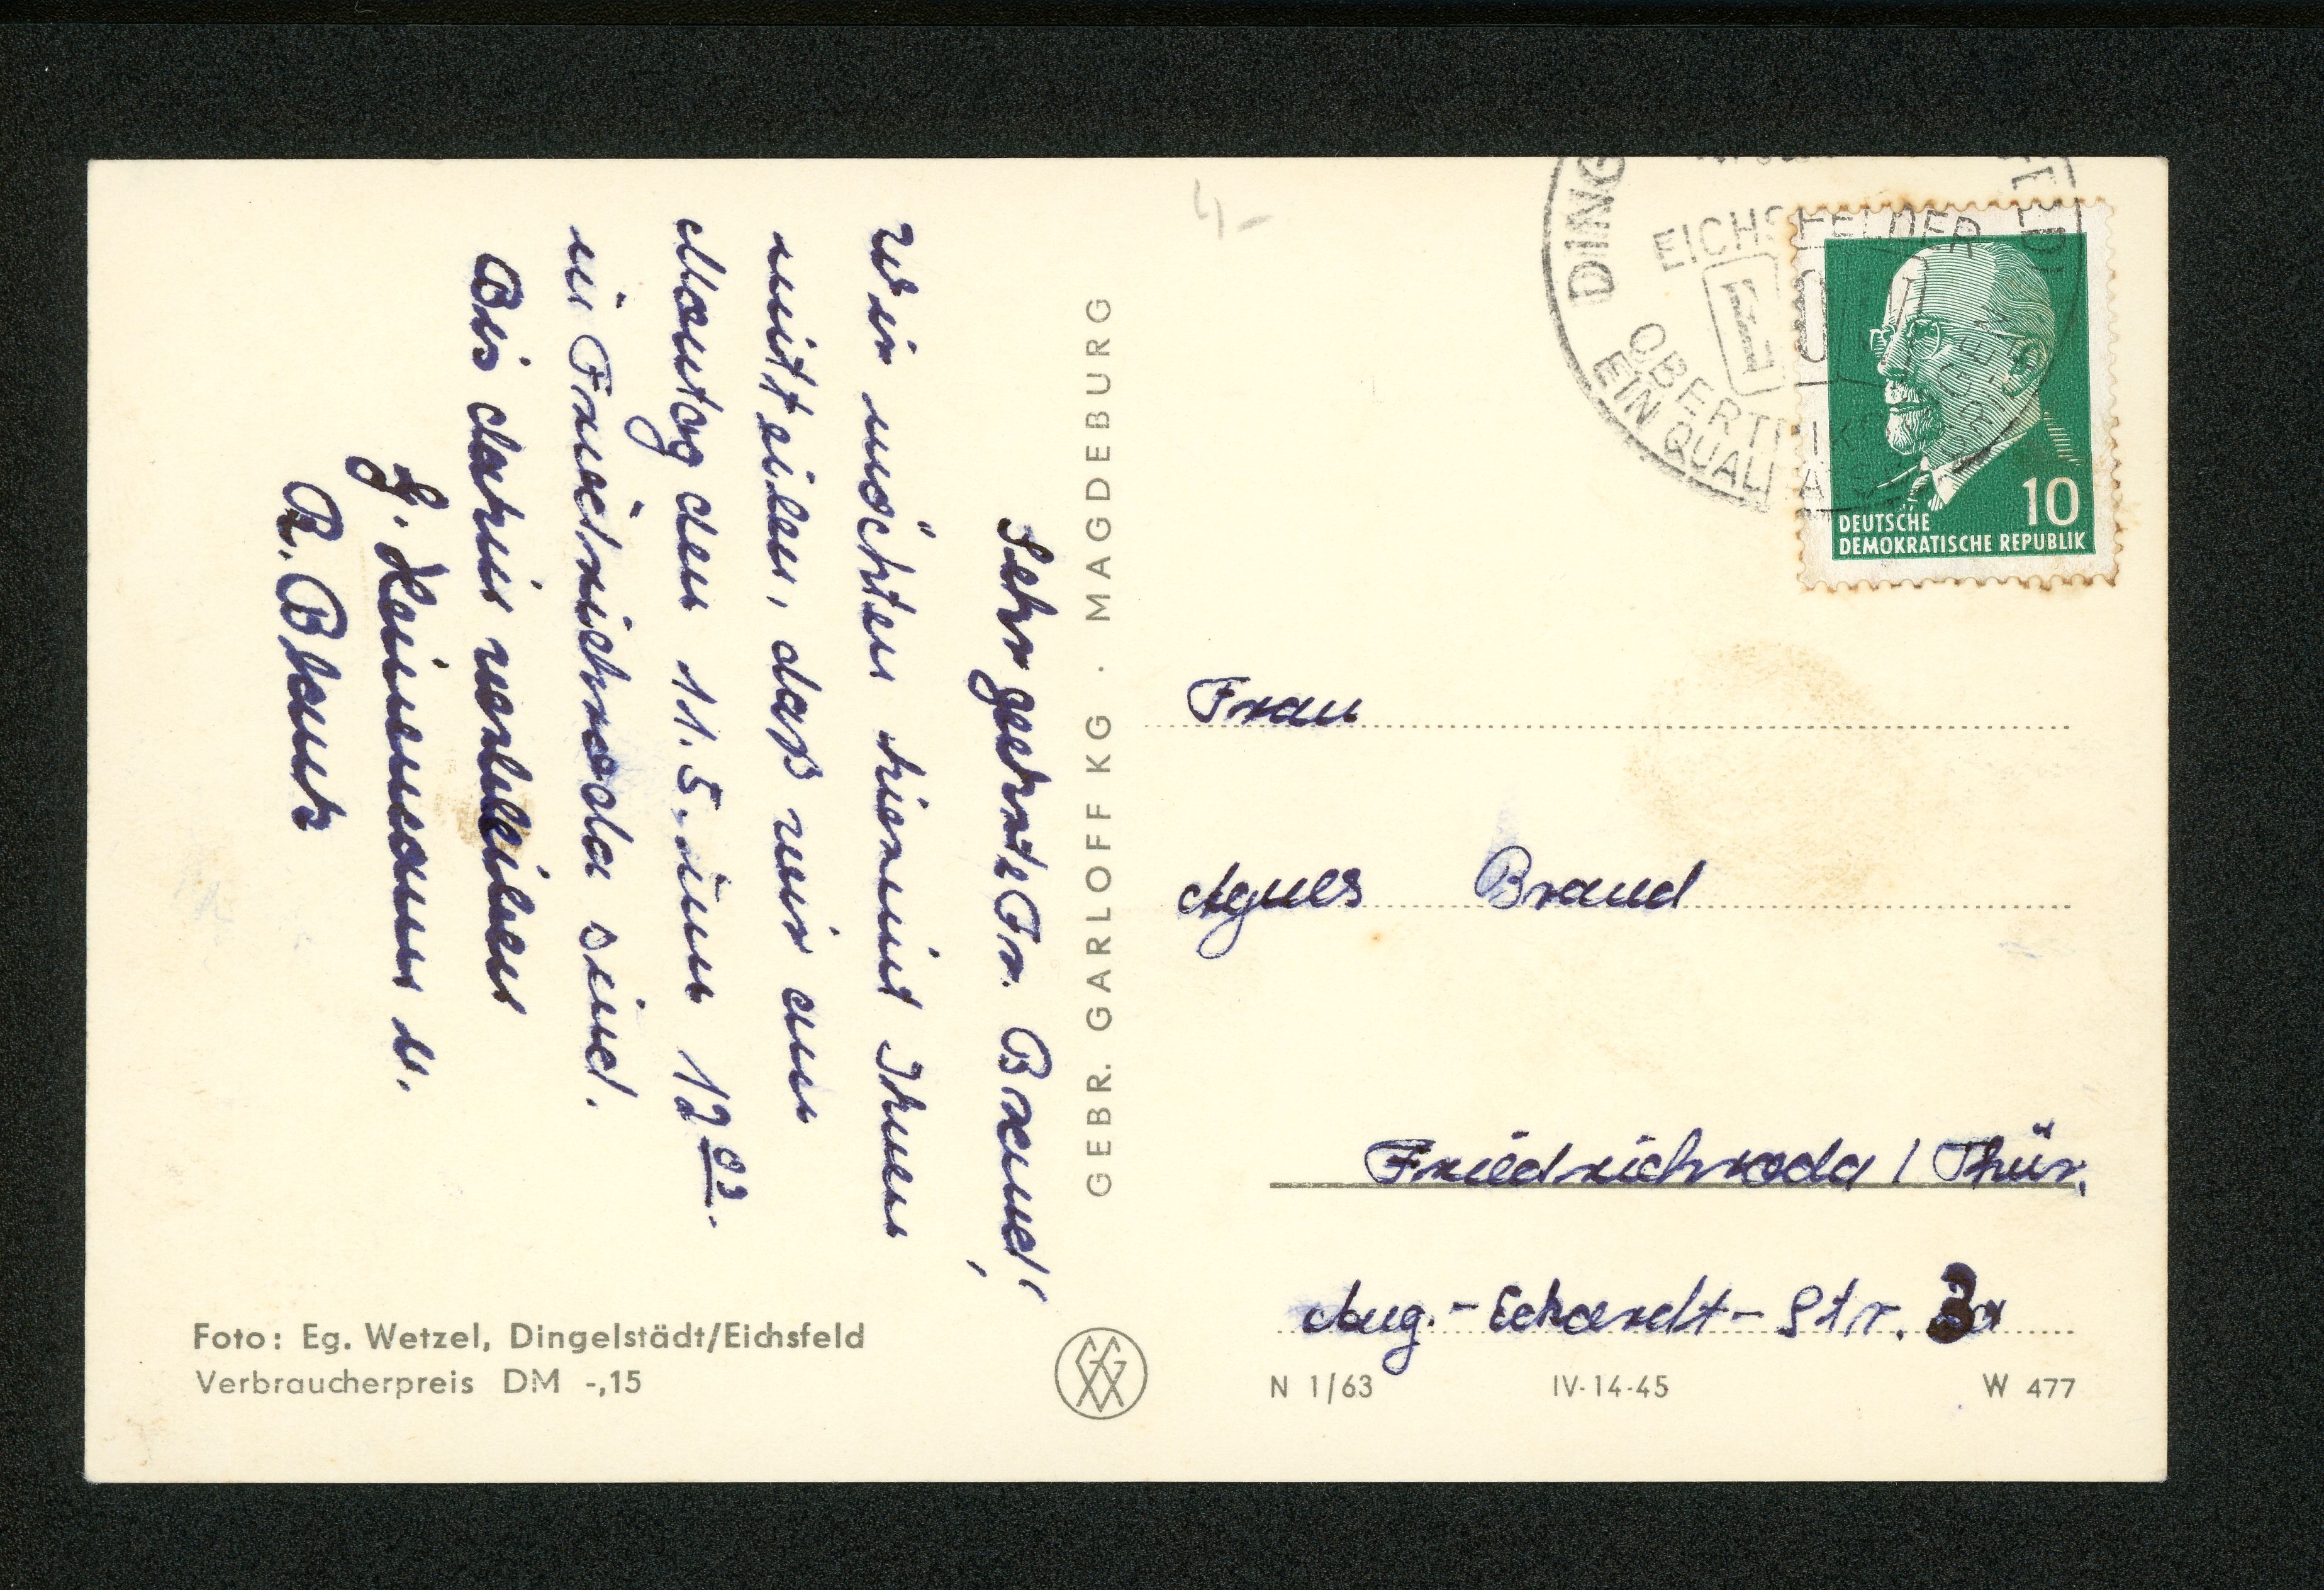 Sehr geehrte Fr. Brand!,
Wir möchten hiermit Ihnen
mitteilen, daß wir am
Montag den 11.5. um 12⁰³.
in Friedrichroda sind.
Bis dahin verbleiben
Heinemann u.
R. Blank
GEBR. GARLOFF KG · MAGDEBURG
Foto: Eg. Wetzel, Dingelstädt/Eichsfeld
Verbraucherpreis DM -,15
4,-
DING
EICHSFELDER
OBERTRIKO
EIN QUALI
10
DEUTSCHE
DEMOKRATISCHE REPUBLIK
Frau
Agnes Brand
Friedrichroda / Thür.
Aug.-Eckardt-Str. 3a
N 1/63 IV-14-45 W 477